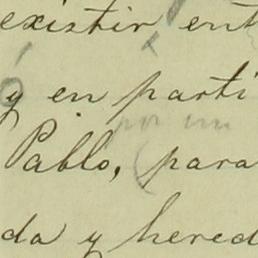 existir ent
y en parti
Pablo, para
da y hered